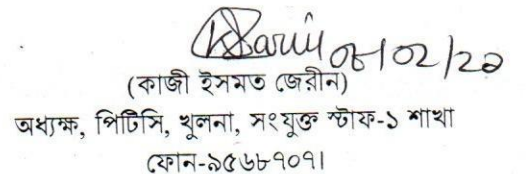 08/02/20
(কাজী ইসমত জেরীন)
অধ্যক্ষ, পিটিসি, খুলনা, সংযুক্ত স্টাফ-১ শাখা
ফোন-৯৫৬৮৭০৭১